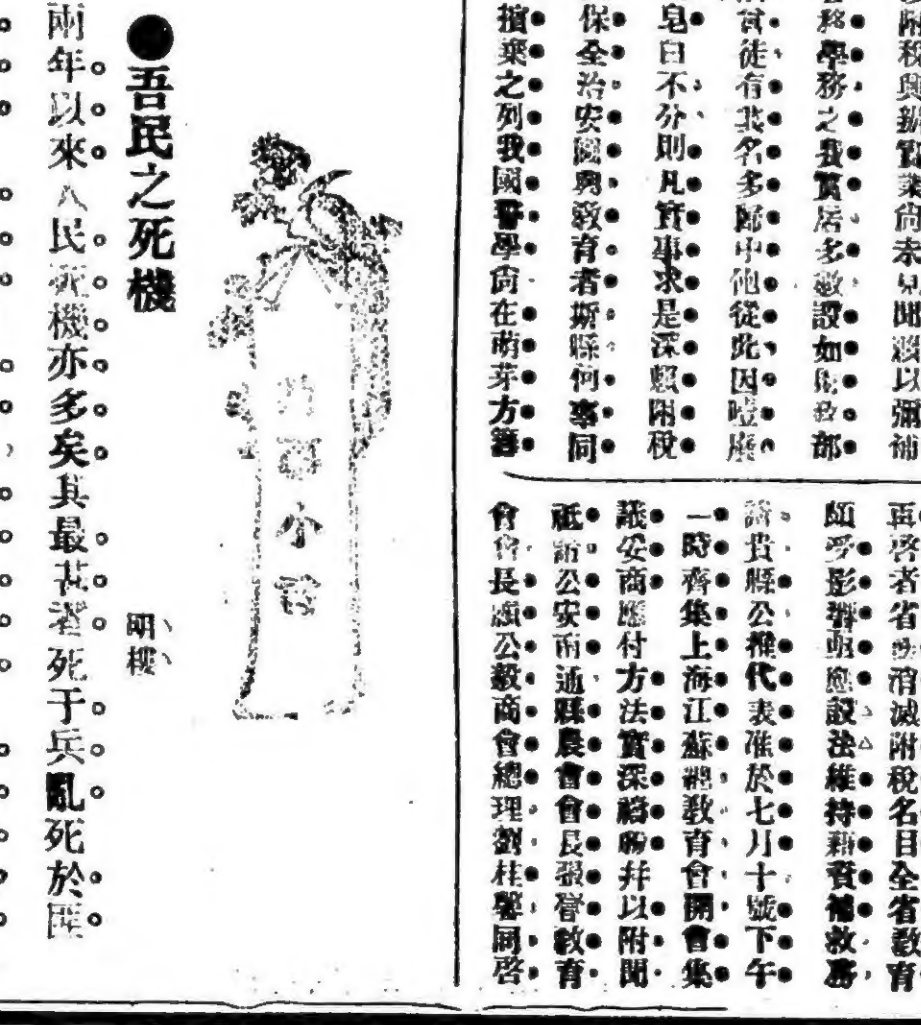 附稅與辦實業尚未見聞設以彌補
務學務之費實居多數設如
官徒有其名多歸中飽從此因噎廢
皂白不分則凡實事求是深賴附稅
保全治安園與敎育者斯縣何事同
擯棄之列我國警學尚在萌芽方籌
再啓者省消滅附稅名目全省敎育
頗受影響亟應設法維持藉資補救務
請貴縣公推代表准於七月十號下午
一時齊集上海江蘇總敎育會開會集
議妥商應付方法實深盼并以附聞
祗請公安南通縣農會會長張詧敎育
會會長顧公毅商會總理劉桂馨同啓
小
●吾民之死機
明樓
兩年以來人民死機亦多矣其最甚者死于兵亂死於匪